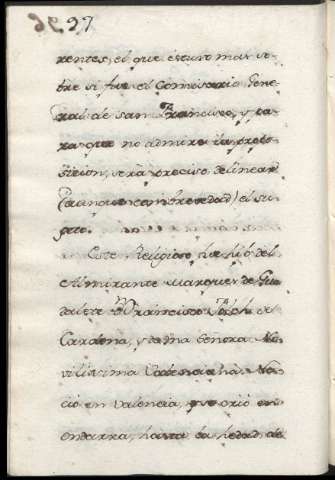 97
rentes, el que estuvo mas so-
bre si fue el Comisario Gene-
ral de San Francisco, y pa-
ra que no admire la propo-
sicion, será preciso delinear
(aunque con brevedad) el su-
geto.
Este Religioso fue hijo del
Almirante Marques de Gua-
dalete Dn Francisco de
Cardona, y de una Senora No-
vilissima Valenciana. Na-
ció en Valencia, y se crió en
hasta la hedad de